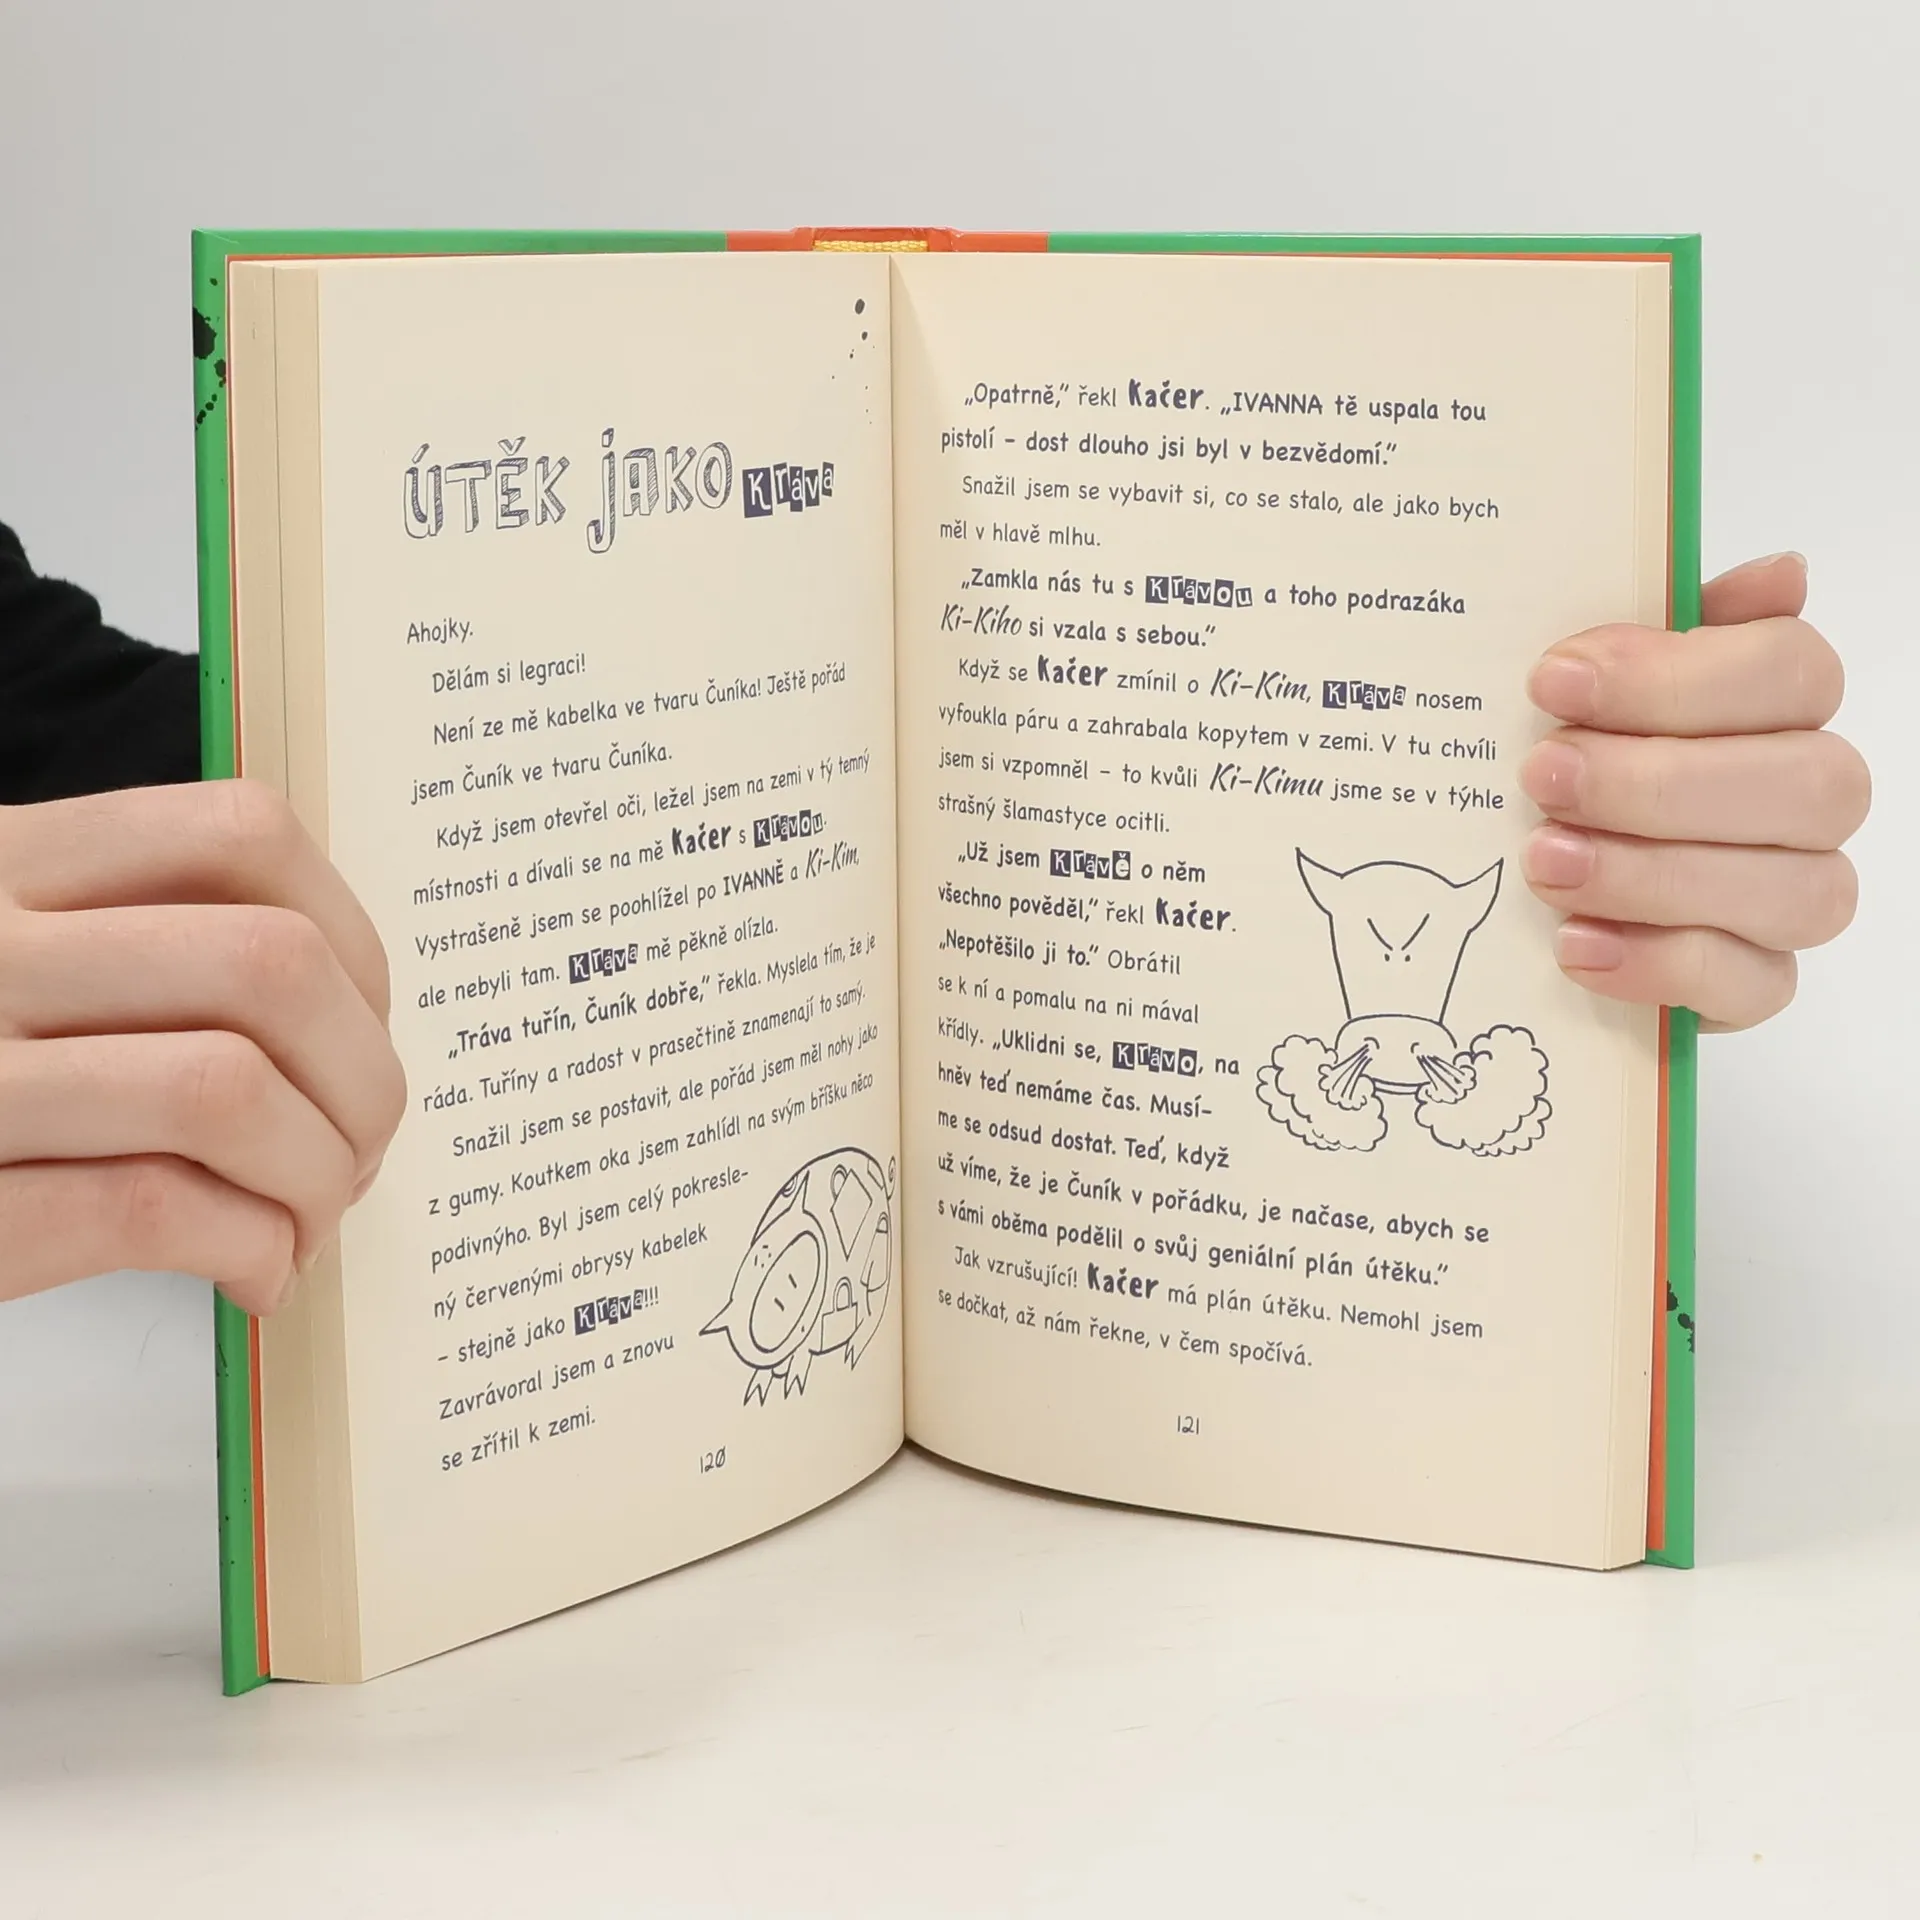 ÚTĚK JAKO Kráva
Ahojky.
Dělám si legraci!
Není ze mě kabelka ve tvaru Čuníka! Ještě pořád
jsem Čuník ve tvaru Čuníka.
Když jsem otevřel oči, ležel jsem na zemi v tý temný
místnosti a dívali se na mě Kačer s Krávou.
Vystrašeně jsem se poohlížel po IVANNĚ a Ki-Kim,
ale nebyli tam. Kráva mě pěkně olízla.
„Tráva tuřín, Čuník dobře,“ řekla. Myslela tím, že je
ráda. Tuříny a radost v prasečtině znamenají to samý.
Snažil jsem se postavit, ale pořád jsem měl nohy jako
z gumy. Koutkem oka jsem zahlídl na svým bříšku něco
podivnýho. Byl jsem celý pokresle-
ný červenými obrysy kabelek
– stejně jako Kráva!!!
Zavrávoral jsem a znovu
se zřítil k zemi.
120
„Opatrně,“ řekl Kačer. „IVANNA tě uspala tou
pistolí – dost dlouho jsi byl v bezvědomí.“
Snažil jsem se vybavit si, co se stalo, ale jako bych
měl v hlavě mlhu.
„Zamkla nás tu s Krávou a toho podrazáka
Ki-Kiho si vzala s sebou.“
Když se Kačer zmínil o Ki-Kim, Kráva nosem
vyfoukla páru a zahrabala kopytem v zemi. V tu chvíli
jsem si vzpomněl – to kvůli Ki-Kimu jsme se v týhle
strašný šlamastyce ocitli.
„Už jsem Krávě o něm
všechno pověděl,“ řekl Kačer.
„Nepotěšilo ji to.“ Obrátil
se k ní a pomalu na ni mával
křídly. „Uklidni se, Krávo, na
hněv teď nemáme čas. Musí-
me se odsud dostat. Teď, když
už víme, že je Čuník v pořádku, je načase, abych se
s vámi oběma podělil o svůj geniální plán útěku.“
Jak vzrušující! Kačer má plán útěku. Nemohl jsem
se dočkat, až nám řekne, v čem spočívá.
121